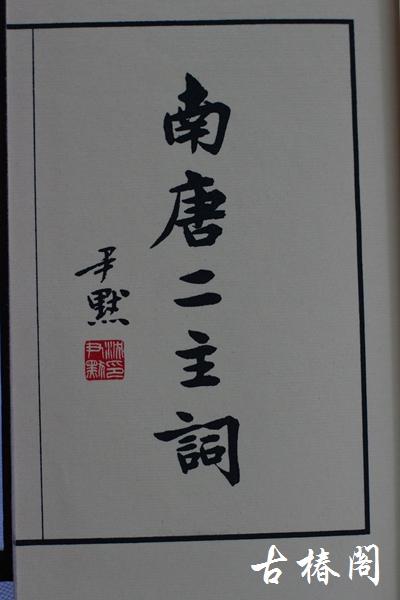 南唐二主詞
尹默
沈尹默印
古椿阁